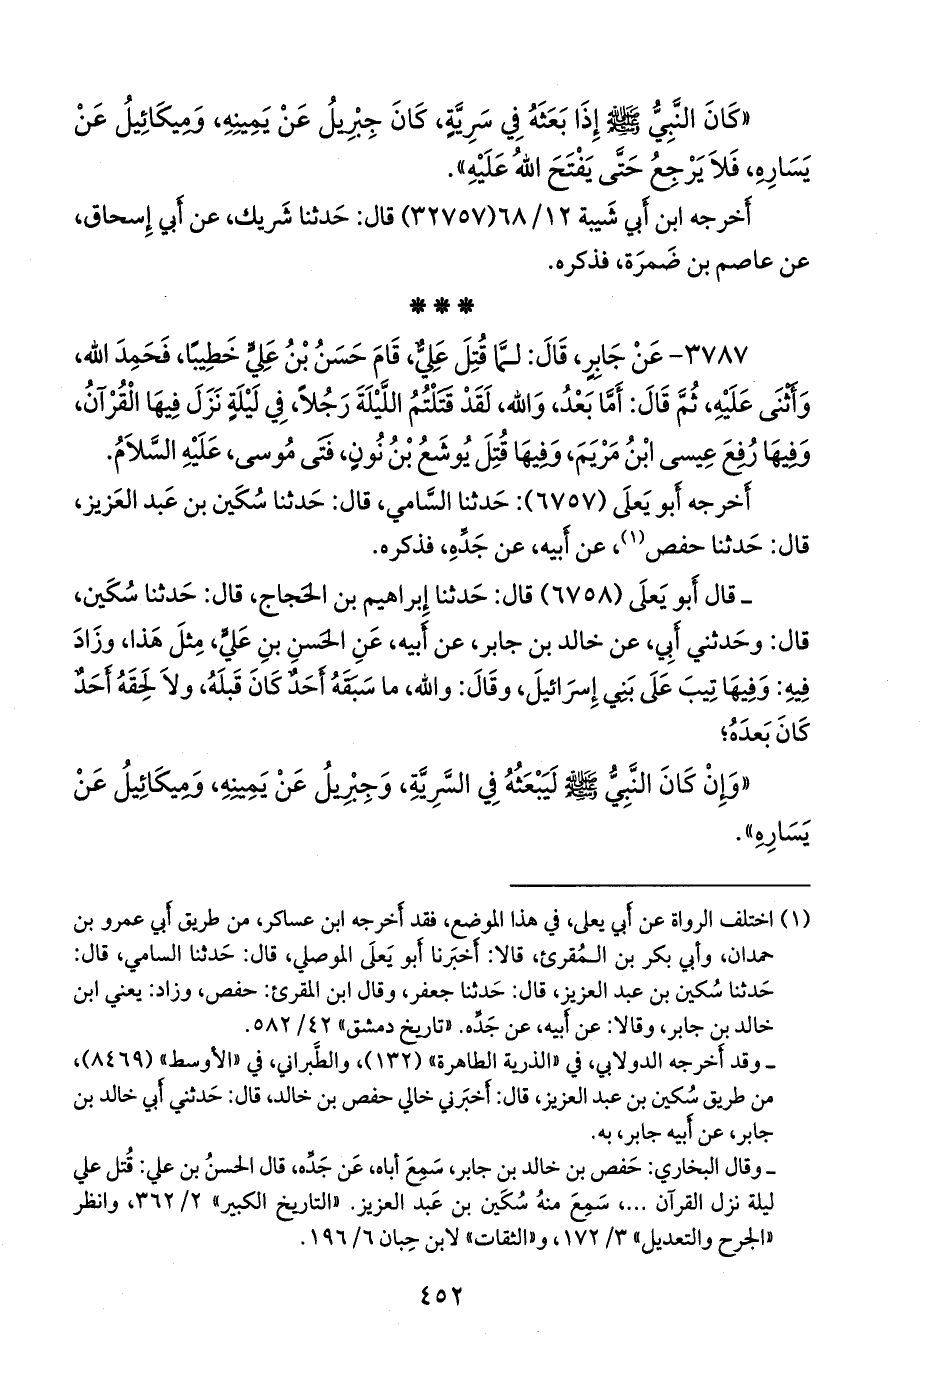 «كَانَ النَّبِيُّ ﷺ إِذَا بَعَثَهُ فِي سَرِيَّةٍ، كَانَ جِبْرِيلُ عَنْ يَمِينِهِ، وَمِيكَائِيلُ عَنْ
يَسَارِهِ، فَلاَ يَرْجِعُ حَتَّى يَفْتَحَ اللهُ عَلَيْهِ».
أَخرجه ابن أَبي شَيبة ١٢/ ٦٨(٣٢٧٥٧) قال: حَدثنا شَريك، عن أَبي إِسحاق،
عن عاصم بن ضَمرَة، فذكره.
***
٣٧٨٧- عَنْ جَابِرٍ، قَالَ: لمَّا قُتِلَ عَلِيٌّ، قَامَ حَسَنُ بْنُ عَلِيٍّ خَطِيبًا، فَحَمِدَ الله،
وَأَثْنَى عَلَيْهِ، ثُمَّ قَالَ: أَمَّا بَعْدُ، وَالله، لَقَدْ قَتَلْتُمُ اللَّيْلَةَ رَجُلاً، فِي لَيْلَةٍ نَزَلَ فِيهَا الْقُرْآنُ،
وَفِيهَا رُفِعَ عِيسى ابْنُ مَرْيَمَ، وَفِيهَا قُتِلَ يُوشَعُ بْنُ نُونٍ، فَتَى مُوسى، عَلَيْهِ السَّلاَمُ.
أَخرجه أَبو يَعلَى (٦٧٥٧): حَدثنا السَّامي، قال: حَدثنا سُكَين بن عَبد العَزيز،
قال: حَدثنا حفص(١)، عن أَبيه، عن جَدِّهِ، فذكره.
ـ قال أَبو يَعلَى (٦٧٥٨) قال: حَدثنا إِبراهيم بن الحَجاج، قال: حَدثنا سُكَين،
قال: وحَدثني أَبِي، عن خالد بن جابر، عن أَبيه، عَنِ الحَسنِ بنِ عَليٍّ، مِثلَ هَذا، وزَادَ
فِيهِ: وَفِيهَا تِيبَ عَلَى بَنِي إِسرَائيلَ، وقَالَ: والله، ما سَبَقَهُ أَحَدٌ كَانَ قَبلَهُ، ولاَ لَحِقَهُ أَحَدٌ
كَانَ بَعدَهُ؛
«وَإِنْ كَانَ النَّبِيُّ ﷺ لَيَبْعَثُهُ فِي السَّرِيَّةِ، وَجِبْرِيلُ عَنْ يَمِينِهِ، وَمِيكَائِيلُ عَنْ
يَسَارِهِ».
(١) اختلف الرواة عن أَبي يعلى، في هذا الموضع، فقد أَخرجه ابن عساكر، من طريق أَبي عمرو بن
حمدان، وأَبي بكر بن الـمُقرئ، قالا: أَخبَرنا أَبو يَعلَى الموصلي، قال: حَدثنا السامي، قال:
حَدثنا سُكين بن عبد العزيز، قال: حَدثنا جعفر، وقال ابن المقرئ: حفص، وزاد: يعني ابن
خالد بن جابر، وقالا: عن أَبيه، عن جَدِّه. «تاريخ دمشق» ٤٢/ ٥٨٢.
ـ وقد أَخرجه الدولابي، في «الذرية الطاهرة» (١٣٢)، والطَّبراني، في «الأوسط» (٨٤٦٩)،
من طريق سُكين بن عبد العزيز، قال: أَخبَرني خالي حفص بن خالد، قال: حَدثني أَبي خالد بن
جابر، عن أَبيه جابر، به.
ـ وقال البخاري: حَفص بن خالد بن جابر، سَمِعَ أَباه، عَن جَدِّه، قال الحسنُ بن علي: قُتل علي
ليلة نزل القرآن ...، سَمِعَ منهُ سُكَين بن عَبد العزيز. «التاريخ الكبير» ٢/ ٣٦٢، وانظر
«الجرح والتعديل» ٣/ ١٧٢، و«الثقات» لابن حِبان ٦/ ١٩٦.
٤٥٢